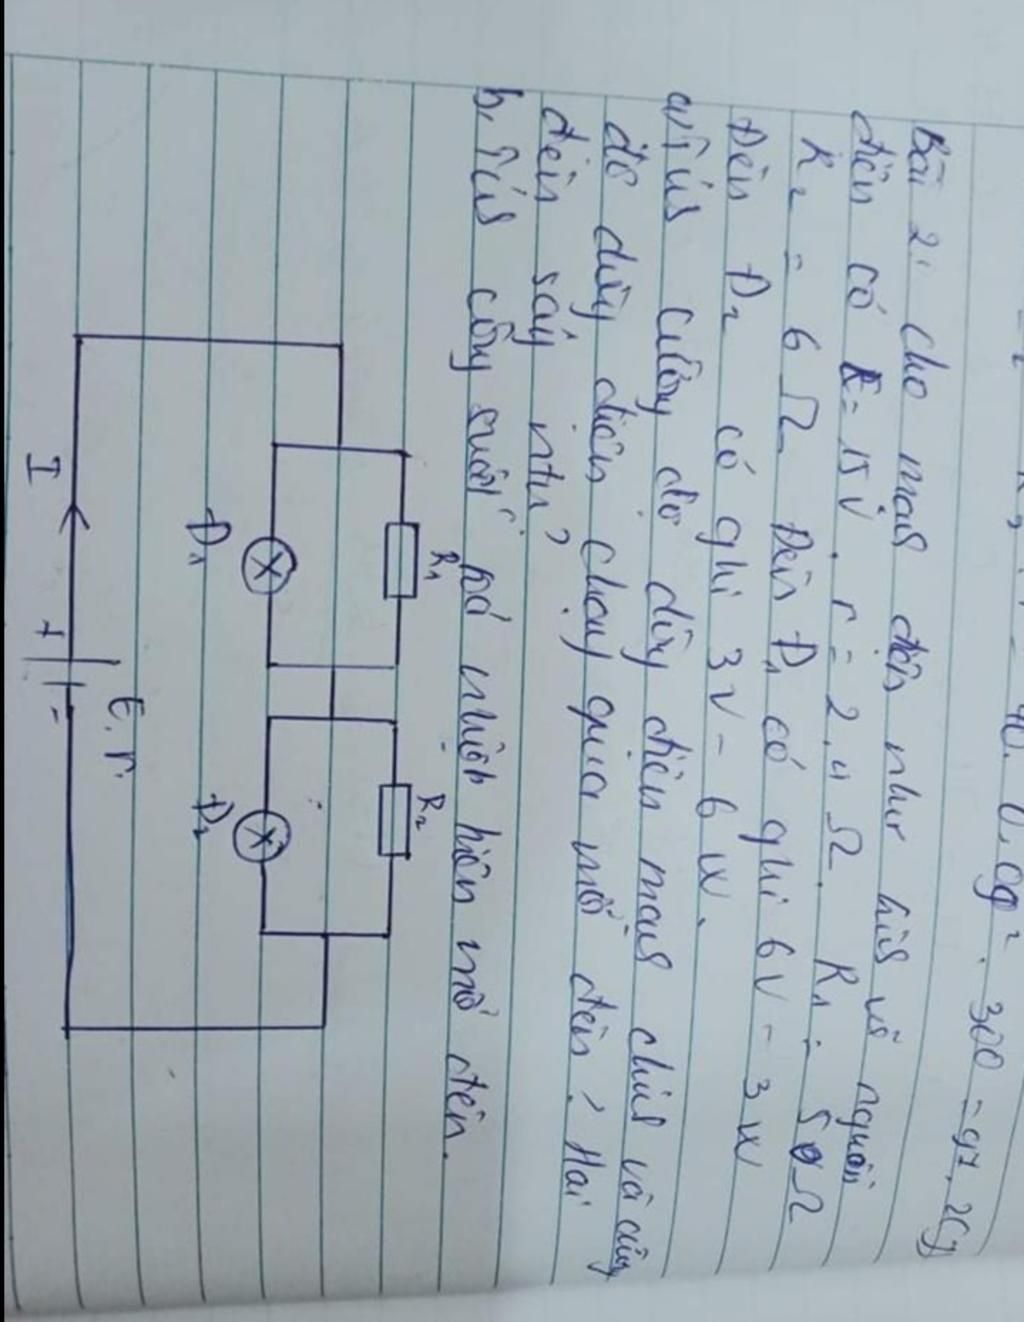 40. 0,09². 300 = 97,2(J)
Bài 2: Cho mạch điện như hình vẽ nguồn
điện có E = 15V, r = 2,4 Ω. R₁ = 5 Ω
R₂ = 6 Ω Đèn Đ₁ có ghi 6V - 3W
Đèn Đ₂ có ghi 3V - 6W.
a, Tính cường độ dòng điện mạch chính và cường
độ dòng điện chạy qua mỗi đèn, Hai
đèn sáng ntn?
b, Tính công suất toả nhiệt trên mỗi đèn.
R₁
R₂
Đ₁
Đ₂
I
+ -
E, r